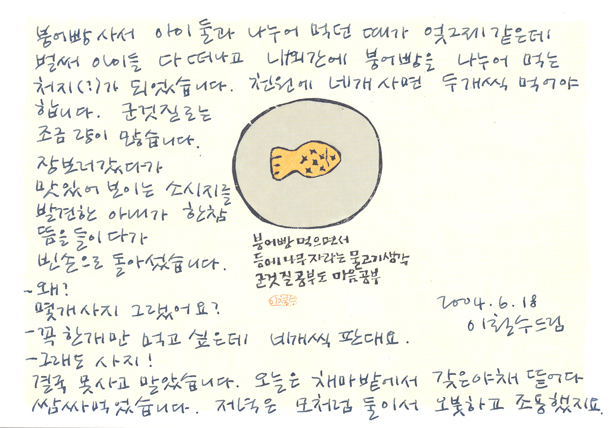 붕어빵 사서 아이 둘과 나누어 먹던 때가 엊그제 같은데
벌써 아이들 다 떠나고 내외간에 붕어빵을 나누어 먹는
처지(?)가 되었습니다. 천원에 네개 사면 두개씩 먹어야
합니다. 군것질로는
조금 량이 많습니다.
장보러갔다가
맛있어 보이는 소시지를
발견한 아내가 한참
뜸을 들이다가
빈손으로 돌아섰습니다.
붕어빵 먹으면서
등에 나무 자라는 물고기생각
군것질공부도 마음공부
-왜?
몇개사지 그랬어요?
-꼭 한개만 먹고 싶은데 네개씩 판대요.
-그래도 사지!
결국 못사고 말았습니다. 오늘은 채마밭에서 갖은야채 뜯어다
쌈싸먹었습니다. 저녁은 모처럼 둘이서 오붓하고 조용했지요.
2004.6.18
이철수드림